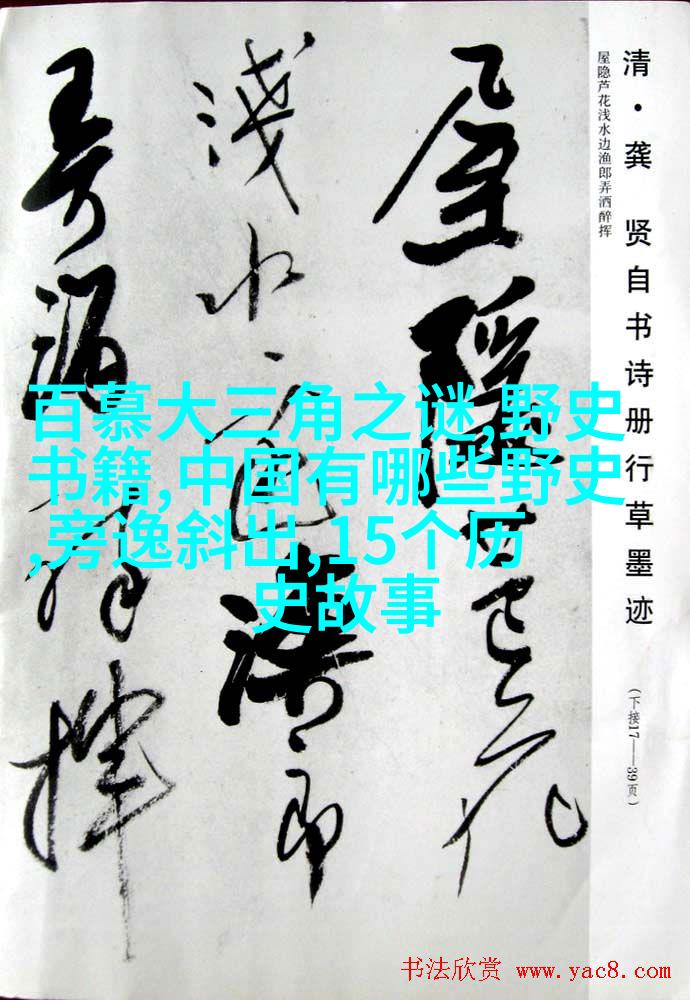 清·龚 贤自书诗册行草墨迹
(下接17——39页)
屋隐芦花浅水边渔郎弄酒醉挥
屋隐芦花
浅水边渔郎
弄酒醉挥
百慕大三角之谜,野史
书籍,中国有哪些野史
,旁逸斜出,15个历
史故事
书法欣赏 www.yac8.com